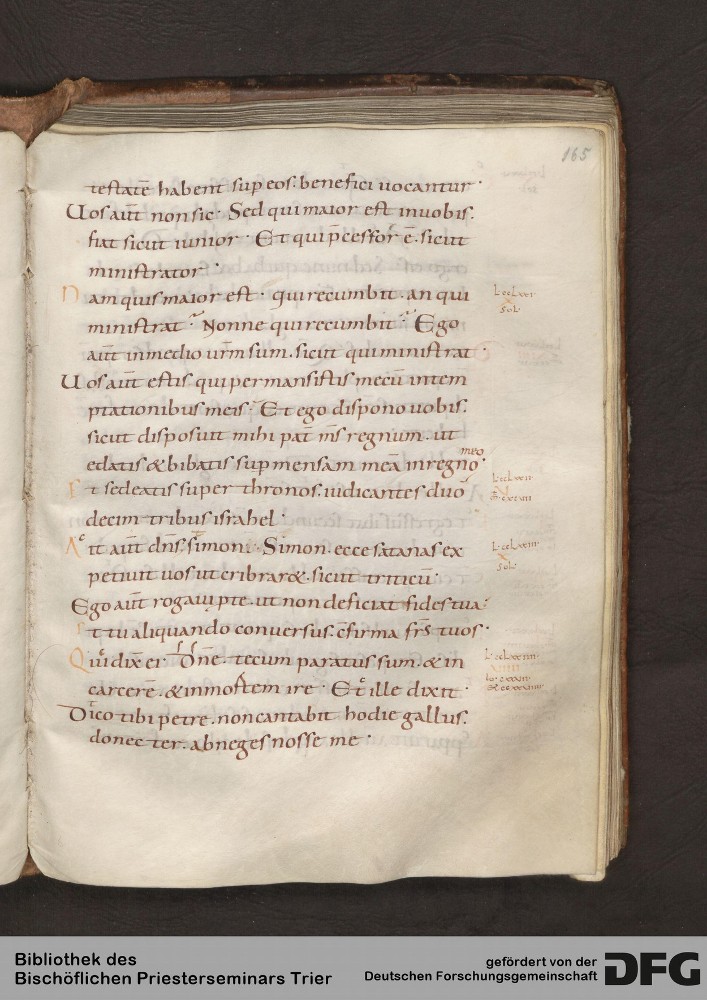 165
testatē habent sup eos. benefici uocantur.
Uos aut̄ non sic. Sed qui maior est in uobis.
fiat sicut iunior. Et qui p̄cessor ē. sicut
ministrator.
Nam quis maior est. qui recumbit. an qui
ministrat. Nonne qui recumbit. Ego
aut̄ in medio ur̄m sum. sicut qui ministrat.
Uos aut̄ estis qui permansistis mecū in tem
ptationibus meis. Et ego dispono uobis.
sicut disposuit mihi pat̄ m̄s regnum. ut
edatis & bibatis sup mensam meā in regno meo.
Et sedeatis super thronos. iudicantes duo
decim tribus israhel.
Ait aut̄ dn̄s. simoni. Simon. ecce satanas ex
petiuit uos ut cribrar&. sicut triticū.
Ego aut̄ rogaui p te. ut non deficiat fides tua.
Et tu aliquando conuersus. c̄firma fr̄s tuos.
Qui dix̄ ei. Dn̄e. tecum paratus sum. & in
carcerē. & in mortem ire. Et ille dixit.
Dico tibi petre. non cantabit hodie gallus.
donec ter. abneges nosse me.
Bibliothek des
Bischöflichen Priesterseminars Trier
gefördert von der
Deutschen Forschungsgemeinschaft
DFG